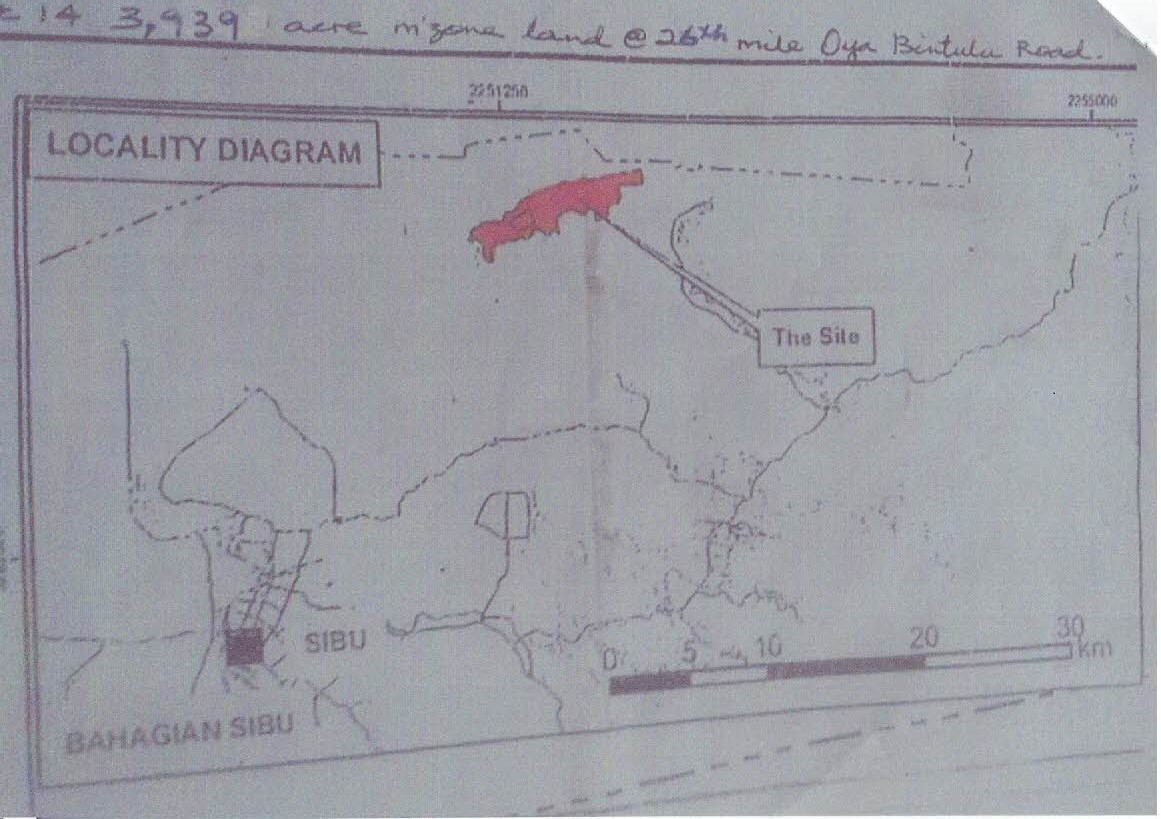 14 3,939 acre m'zone land @ 26th mile Oya Bintulu Road.
2251250
2255000
LOCALITY DIAGRAM
The Site
SIBU
0 5 10 20 30
km
BAHAGIAN SIBU